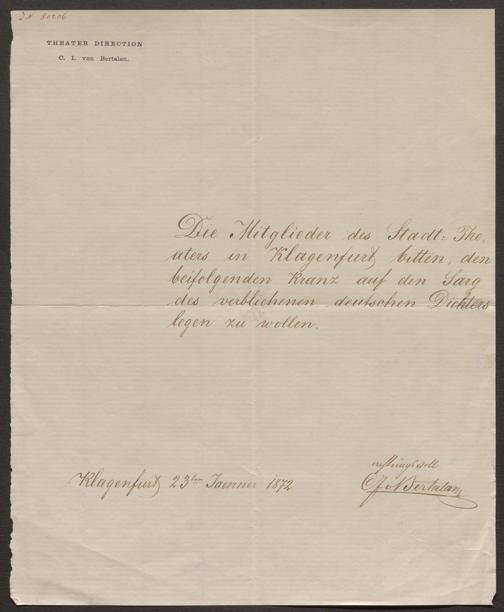 JN 80206
THEATER DIRECTION
C. I. von Bertalan.
Die Mitglieder des Stadt=The,
aters in Klagenfurt, bitten, den
beifolgenden Kranz auf den Sarg
des verblichenen deutschen Dichters
legen zu wollen.
achtungsvoll
Klagenfurt, 23ten Jaenner 1872
CJvBertalan